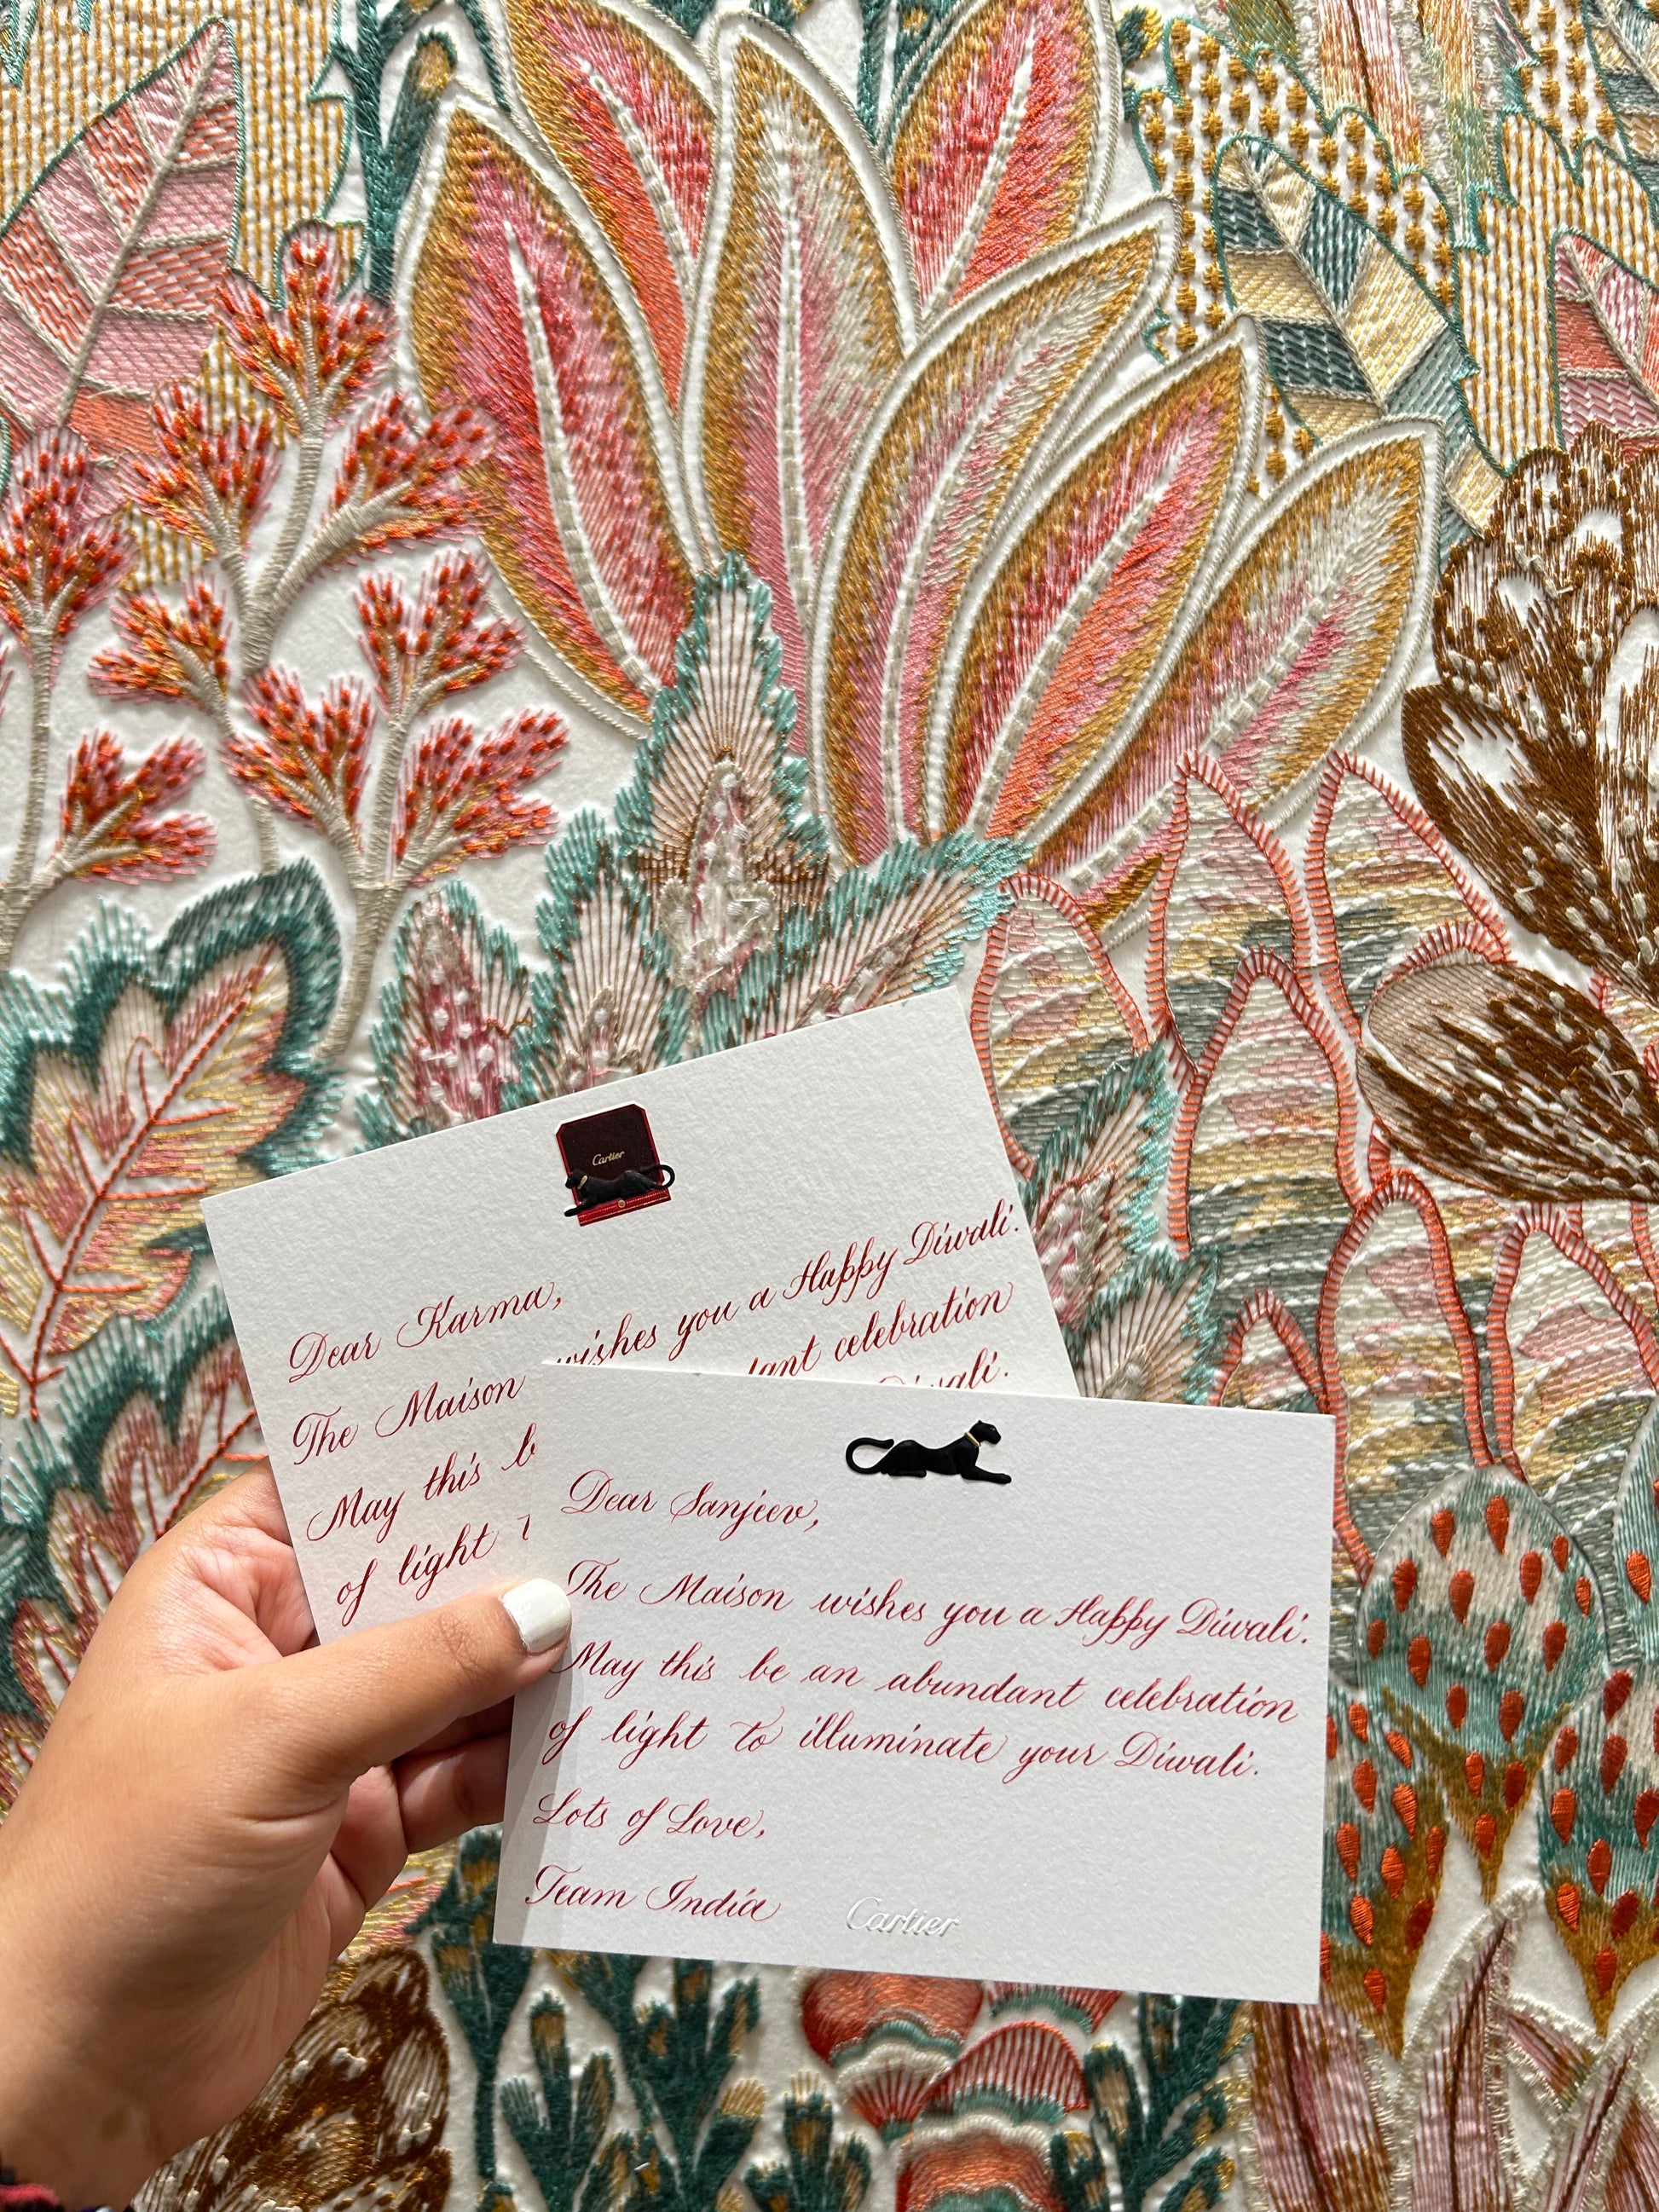 Cartier
Dear Karma,
The Maison wishes you a Happy Diwali.
May this celebration
of light Diwali.
Dear Sanjeev,
The Maison wishes you a Happy Diwali.
May this be an abundant celebration
of light to illuminate your Diwali.
Lots of Love,
Team India
Cartier